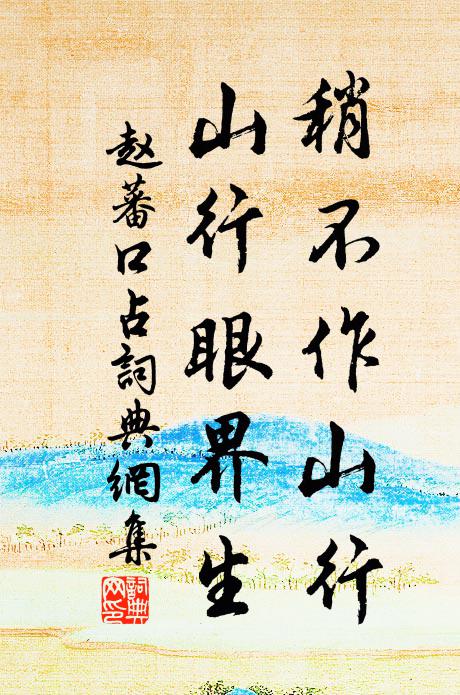 稍不作山行
山行眼界生
赵蕃口占詞典網集
詞典网印